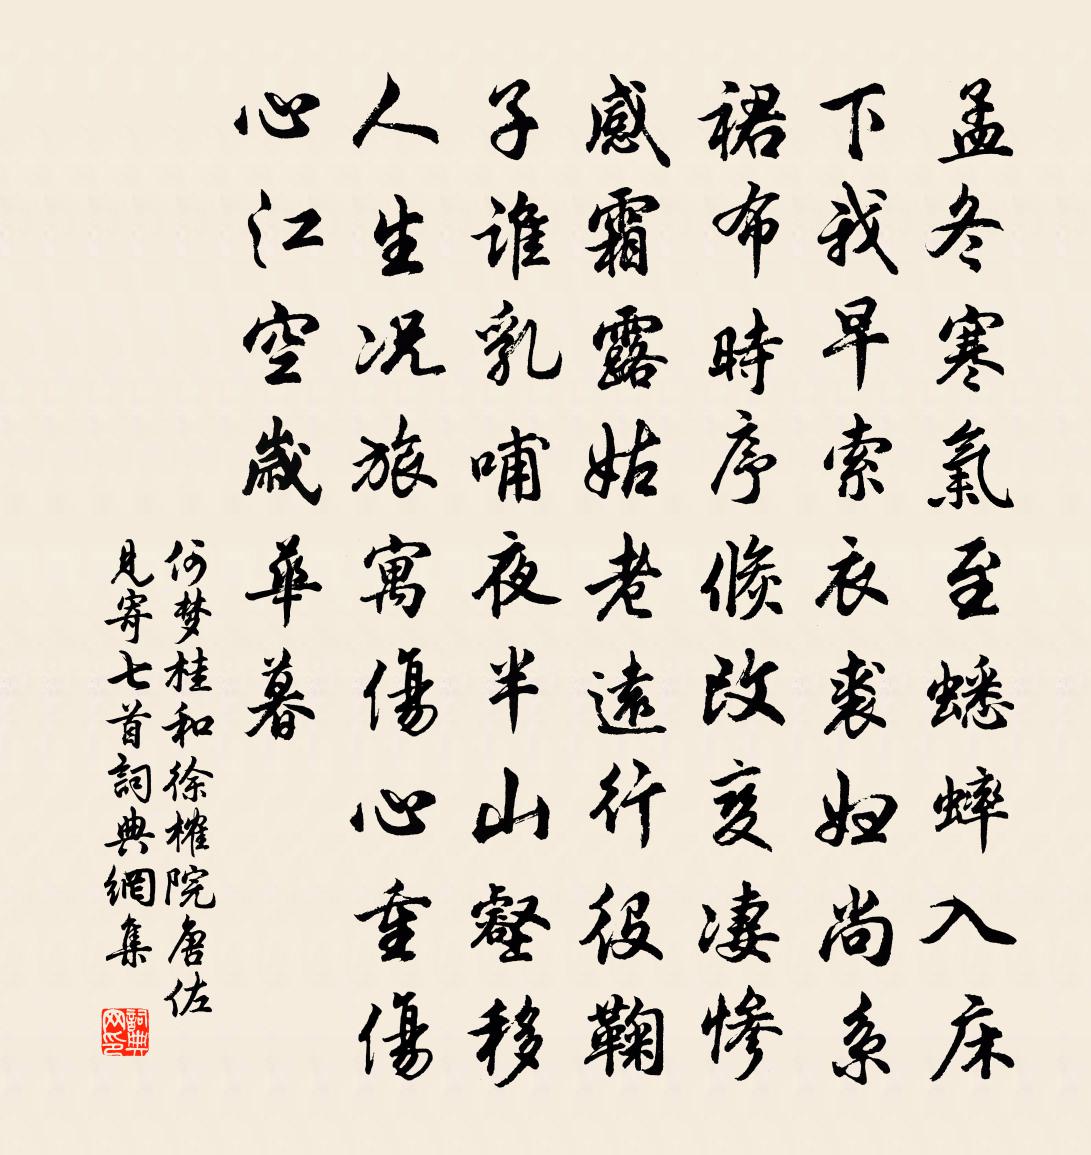 孟冬寒氣至蟋蟀入床
下我早索衣裘妇尚系
裙布時序倏改变凄惨
感霜露姑老遠行役鞠
子谁乳哺夜半山壑移
人生况旅寓傷心重傷
心江空歲華暮
何梦桂和徐榷院唐佐
見寄七首詞典網集
詞典网印